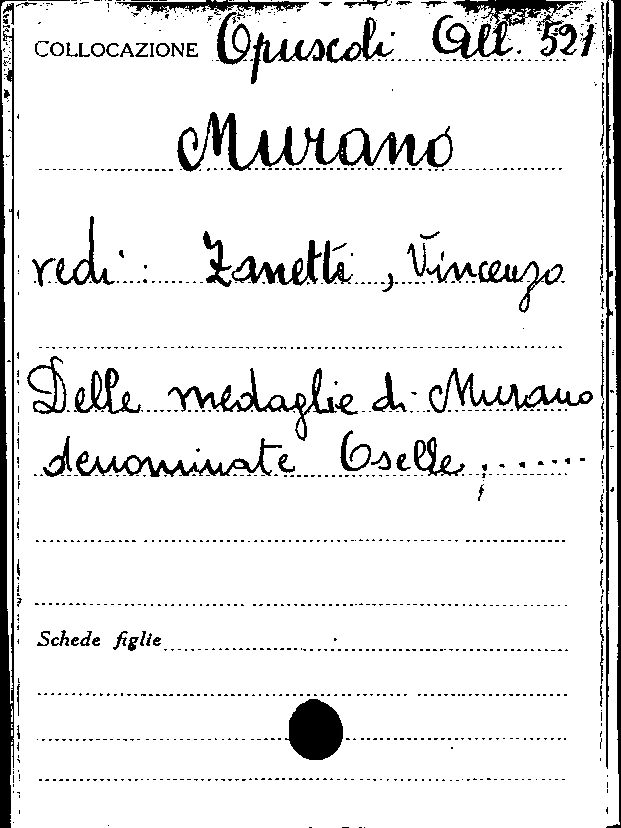 COLLOCAZIONE Opuscoli All. 521
Murano
vedi: Zanetti, Vincenzo
Delle medaglie di Murano
denominate Oselle, .......
Schede figlie